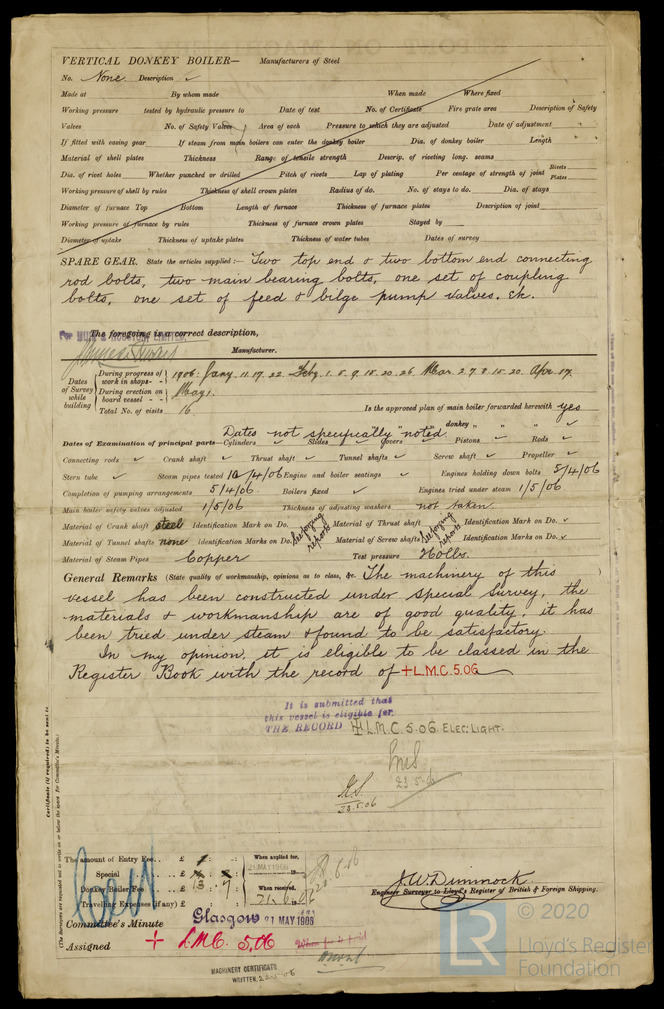 VERTICAL DONKEY BOILER— Manufacturers of Steel
No. None Description ✓
Made at By whom made When made Where fixed
Working pressure tested by hydraulic pressure to Date of test No. of Certificate Fire grate area Description of Safety
Valves No. of Safety Valves Area of each Pressure to which they are adjusted Date of adjustment
If fitted with easing gear If steam from main boilers can enter the donkey boiler Diam. of donkey boiler Length
Material of shell plates Thickness Range of tensile strength Descrip. of riveting long. seams
Dia. of rivet holes Whether punched or drilled Pitch of rivets Lap of plating Per centage of strength of joint Rivets Plates
Working pressure of shell by rules Thickness of shell crown plates Radius of do. No. of stays to do. Dia. of stays
Diameter of furnace Top Bottom Length of furnace Thickness of furnace plates Description of joint
Working pressure of furnace by rules Thickness of furnace crown plates Stayed by
Diameter of uptake Thickness of uptake plates Thickness of water tubes Dates of survey
SPARE GEAR. State the articles supplied:— Two top end & two bottom end connecting
rod bolts, two main bearing bolts, one set of coupling
bolts, one set of feed & bilge pump valves. &c.
The foregoing is a correct description,
For MUIR & HOUSTON, LIMITED,
Manufacturer.
Dates of Survey while building
During progress of work in shops - - 1906: Jany. 11. 17. 22. Feby. 1. 8. 9. 15. 20. 26. Mar. 2. 7. 8. 15. 20. Apr. 17.
During erection on board vessel - - May 1.
Total No. of visits 16 Is the approved plan of main boiler forwarded herewith yes
" " " donkey " " " ✓
Dates not specifically noted
Dates of Examination of principal parts—Cylinders ✓ Slides ✓ Covers ✓ Pistons ✓ Rods ✓
Connecting rods ✓ Crank shaft ✓ Thrust shaft ✓ Tunnel shafts ✓ Screw shaft ✓ Propeller ✓
Stern tube ✓ Steam pipes tested 10/4/06 Engine and boiler seatings ✓ Engines holding down bolts 5/4/06
Completion of pumping arrangements 5/4/06 Boilers fixed ✓ Engines tried under steam 1/5/06
Main boiler safety valves adjusted 1/5/06 Thickness of adjusting washers not taken
Material of Crank shaft steel Identification Mark on Do. See forging reports Material of Thrust shaft See forging reports Identification Mark on Do. ✓
Material of Tunnel shafts none Identification Marks on Do. Material of Screw shafts Identification Marks on Do. ✓
Material of Steam Pipes Copper Test pressure 400 lbs.
General Remarks (State quality of workmanship, opinions as to class, &c. The machinery of this
vessel has been constructed under special survey, the
materials & workmanship are of good quality, it has
been tried under steam & found to be satisfactory.
In my opinion, it is eligible to be classed in the
Register Book with the record of +L.M.C. 5.06
It is submitted that
this vessel is eligible for
THE RECORD + L.M.C. 5.06. ELEC: LIGHT.
23.5.06
23.5.06
Certificate (if required) to be sent to
(The Surveyors are requested not to write on or below the space for Committee's Minute.)
The amount of Entry Fee . . £ 1 : : When applied for,
Special . . £ 13 : 7 : 21 MAY 1906
Donkey Boiler Fee . . £ : : When received,
Travelling Expenses (if any) £ : :
J.W. Dimmock
Engineer Surveyor to Lloyd's Register of British & Foreign Shipping.
Committee's Minute Glasgow 21 MAY 1906
Assigned + L.M.C. 5,06
MACHINERY CERTIFICATE
WRITTEN
© 2020
Lloyd's Register
Foundation
LR